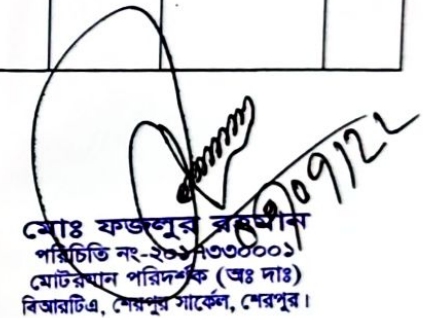 ০৭/০৭/২২
মোঃ ফজলুর রহমান
পরিচিতি নং-২০১৭৩০০০১
মোটরযান পরিদর্শক (অঃ দাঃ)
বিআরটিএ, শেরপুর সার্কেল, শেরপুর।